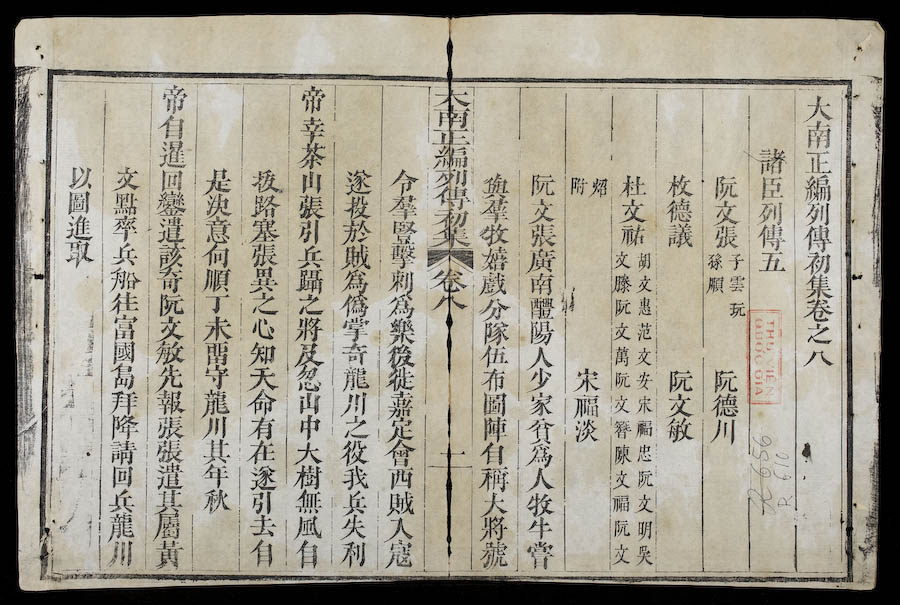 大南正編列傳初集卷之八
諸臣列傳五
阮文張 子雲 玩 孫順 阮德川
枚德議 阮文敏
杜文祐 胡文惠 范文安 宋福忠 阮文明 吳文滕 阮文萬 阮文簪 陳文福 阮文耀 附 宋福淡
阮文張廣南醴陽人少家貧為人牧牛嘗
與羣牧嬉戲分隊伍布圖陣自稱大將號
大南正編列傳初集 卷八 一
令羣豎擊刺為樂後徙嘉定會西賊入寇
遂投於賊為偽掌奇龍川之役我兵失利
帝幸茶山張引兵躡之將及忽山中大樹無風自
拔路塞張異之心知天命有在遂引去自
是決意何順丁未留守龍川其年秋
帝自暹回鑾遣該奇阮文敏先報張張遣其屬黃
文點率兵船往富國島拜降請回兵龍川
以圖進取
THƯ VIỆN
QUỐC GIA
R 656
R 610